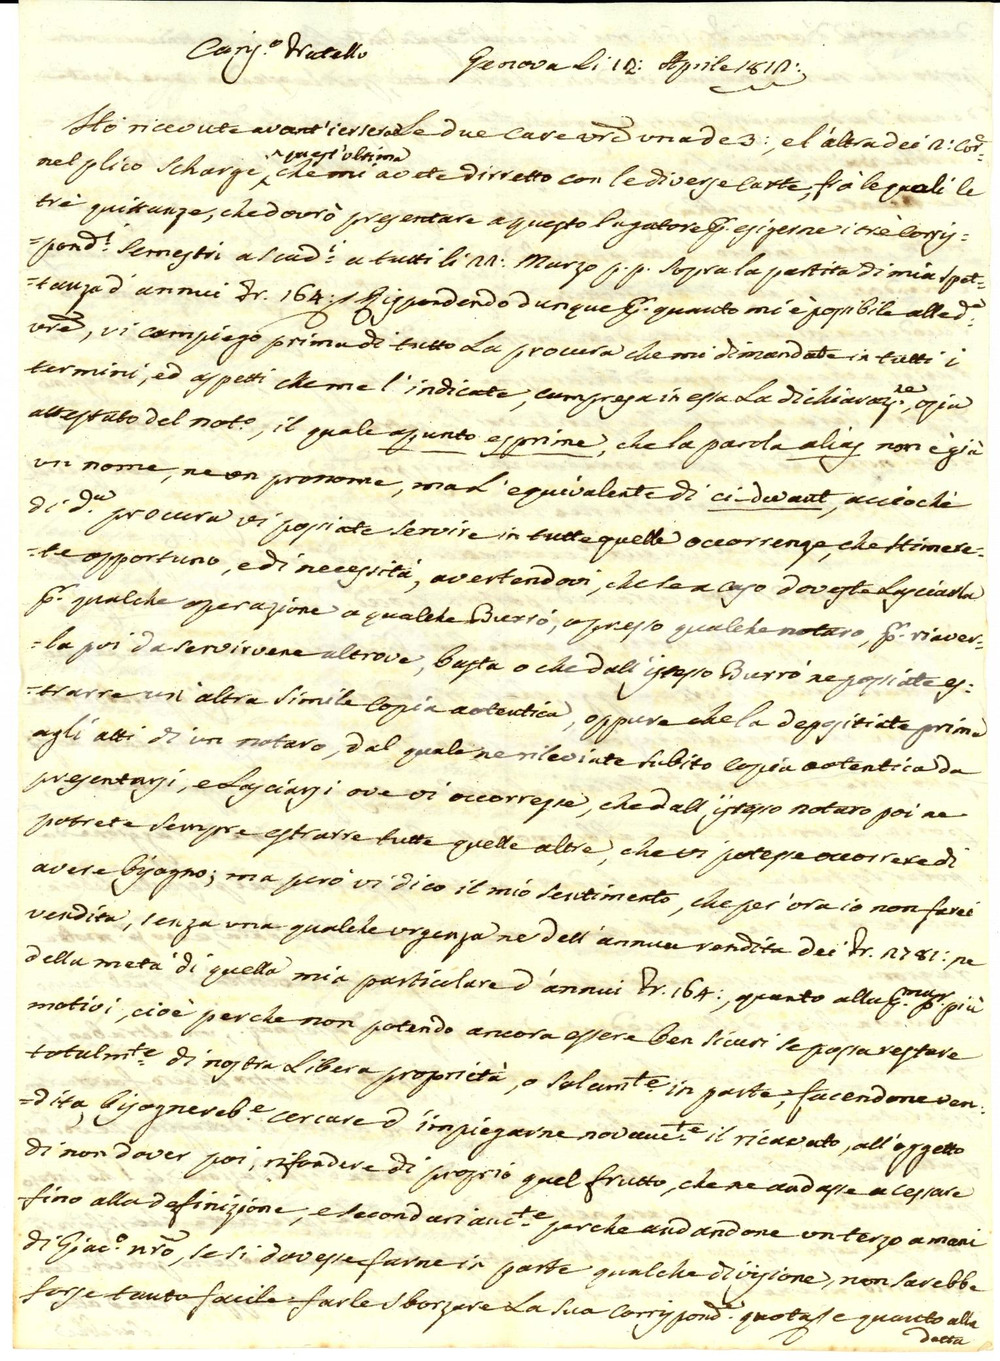 Cariss.o Fratello
Genova Li 12: Aprile 1812:
Hò ricevute avant'iersera Le due Care vre una de 3:, e l'altra dei 2: Cor.te
nel plico Scharge, quest'ultima che mi avete dirretto con le diverse Carte, frà le quali le
trè quittanze, che dovrò presentare a questo Pagatore p. esigerne i trè Corris=
=pond.ti Semestri a scad.i a tutti li 22: Marzo p. p. sopra la partita di mia spet=
=tanza d'annui Fr. 164: Rispondendo dunque p. quanto mi è possibile alle d.e
vre, vi compiego prima di tutto La procura che mi dimandate in tutti i
termini, ed aspetti che me l'indicate, compresa in essa La dichiaraz.ne, ossia
attestato del not.o, il quale appunto esprime, che la parola alias non è già
un nome, ne un pronome, ma L'equivalente di ci-devant, acciochè
di d.a procura vi possiate servire in tutte quelle occorrenze, che stimere=
=te opportuno, e di necessità, avertendovi, che se a caso doveste Lasciarla
p. qualche operazione a qualche Burrò, o presso qualche notaro, p. riaver=
=la poi da servirvene altrove, basta o che dall'istesso Burrò ne possiate es=
=trarre un'altra simile Copia autentica, oppure che la depositiate prima
agli atti di un notaro, dal quale ne rileviate subito Copia autentica da
presentarsi, e Lasciarsi ove vi occorresse, che dall'istesso notaro poi ne
potrete sempre estrarre tutte quelle altre, che vi potesse occorrere di
avere bisogno; ma però vi dico il mio sentimento, che per'ora io non farei
vendita, senza una qualche urgenza ne dell'annua rendita dei Fr. 2781: ne
della metà di quella mia particulare d'annui Fr. 164:, quanto alla p.ma p. più
motivi, cioè perche non potendo ancora essere ben sicuri se possa restare
totalm.te di nostra Libera proprietà, o solam.te in parte, facendone ven=
=dita, bisognereb.e cercare d'impiegarne novam.te il ricavato, all'oggetto
di non dover poi, rifondere di proprio quel frutto, che ne andasse a cessare
fino alla definizione, e secondariam.te perche andandone un terzo a mani
di Giac.o nrò, se si dovesse farne in parte qualche divisione, non sarebbe
forse tanto facile farle sborzare La sua Corrispond.e quota, e quanto alla
detta